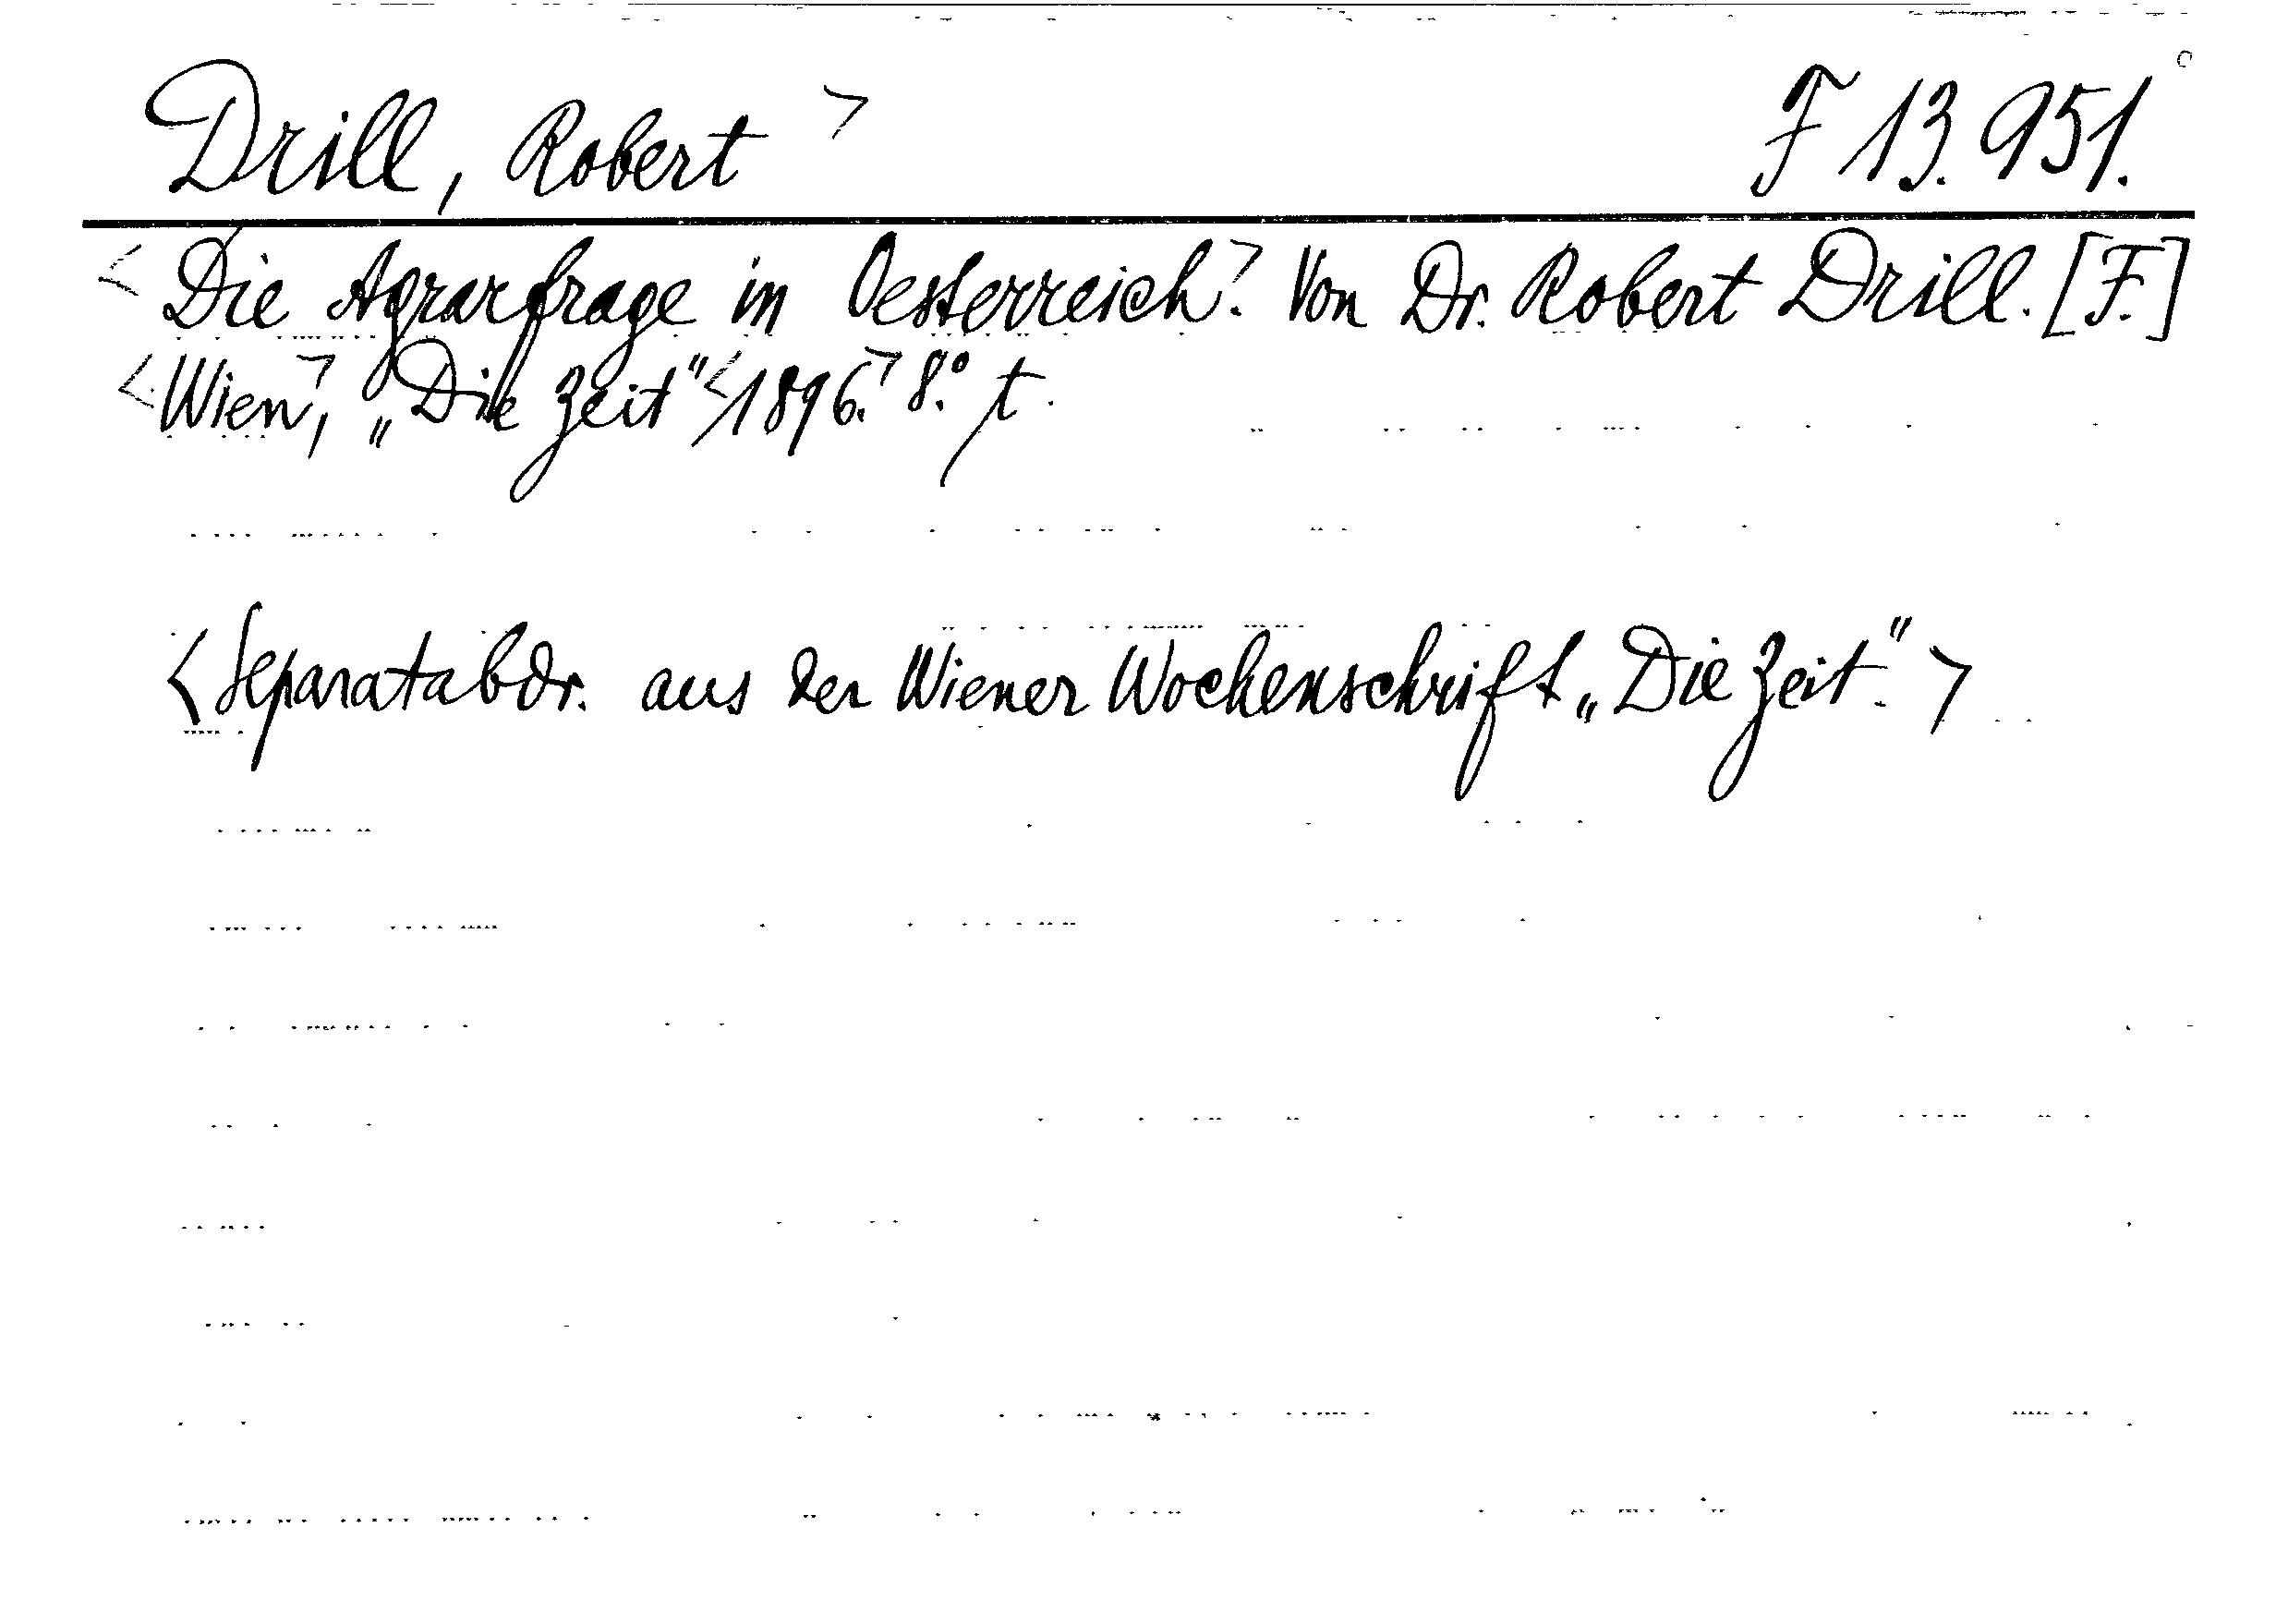 Drill, Robert > F 13.951.
< Die Agrarfrage in Oesterreich.> Von Dr. Robert Drill. [F.]
< Wien,> „Die Zeit" < 1896.> 8.° t.
< Separatabdr. aus der Wiener Wochenschrift „Die Zeit." >